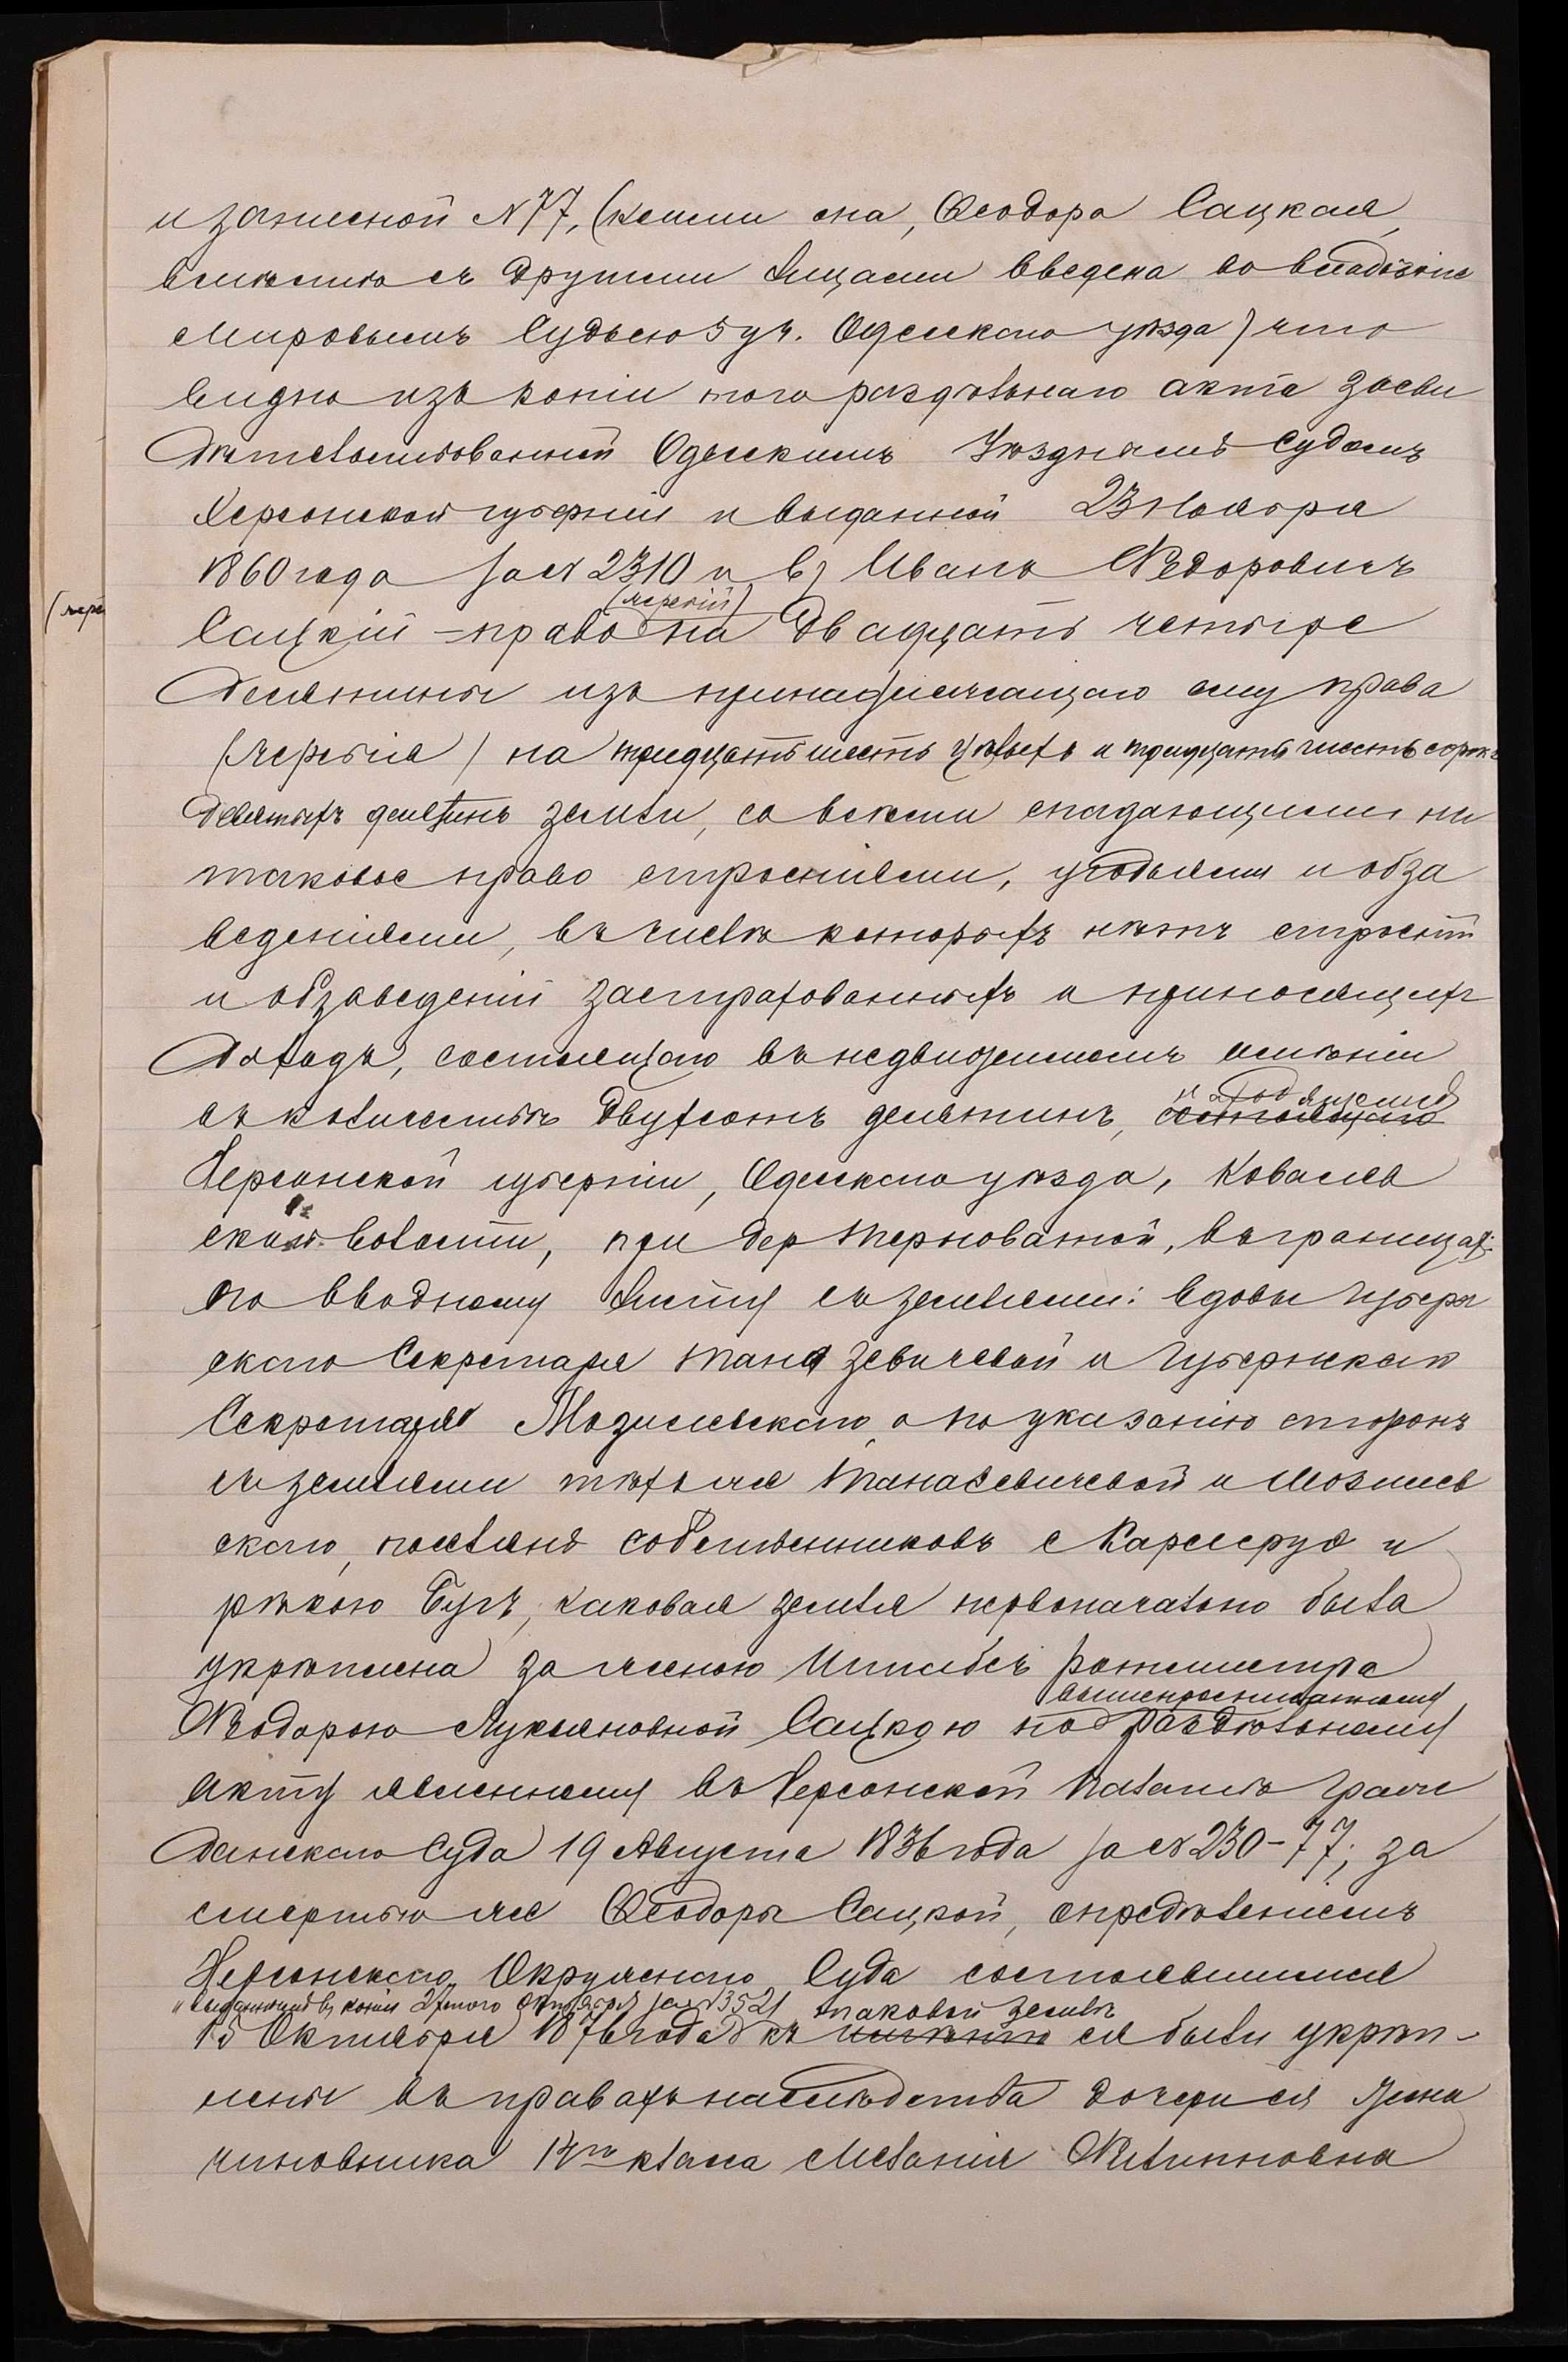 и записной N 77, (коими она, Ѳеодора Сацкая,
вмѣстѣ съ другими лицами введена во владѣніе
Мировымъ Судьею 5 уч. Одесскаго уѣзда) что
видно изъ копіи того раздѣльнаго акта засви
дѣтельствованной Одесскимъ Уѣзднымъ Судомъ
Херсонской губерніи и выданной 23 Ноября
1860 года за N 2310 и в) Иванъ Ѳедоровичъ
(жребій)
Сацкій – право на двадцать четыре
(жре
десятины изъ принадлежащаго ему права
(жребія) на тридцать шесть цѣлыхъ и тридцать шесть сорокъ
девятыхъ десятинъ земли, со всѣми спадающими на
таковое право строеніями, угодьями и обза
веденіями, въ числѣ которыхъ нѣтъ строеній
и обзаведеній застрахованныхъ и приносящихъ
доходъ, состоящаго въ недвижимомъ имѣніи
находящемся
въ количествѣ двухсотъ десятинъ, состоящаго
Херсонской губерніи, Одесскаго уѣзда, Ковалев
ской волости, при дер Терноватой, въ границахъ:
по вводному листу съ землями: вдовы Губерн
скаго Секретаря Танасевичевой и Губернскаго
Секретаря Мозилевскаго, а по указанію сторонъ
съ землями тѣхъ же Танасевичевой и Мозилев
скаго, поселянъ собственниковъ с Карлсруэ и
рѣкою Бугъ, каковая земля первоначально была
укрѣплена за женою Штабсъ Ротмистра
вышепрописанному
Ѳеодорою Лукьяновной Сацкою по раздѣльному
акту явленному въ Херсонской Палатѣ Граж
данскаго Суда 19 Августа 1836 года за N 230–77; за
смертью же Ѳеодоры Сацкой, опредѣленіемъ
Херсонскаго Окружнаго Суда состоявшимся
и выданнымъ въ копіи 27 того Октября за N 3521 таковой землѣ
15 Октября 1876 года къ имѣнію ея были укрѣп-
лены въ правахъ наслѣдства дочери ея жена
чиновника 14го класса Меланія Филипповна